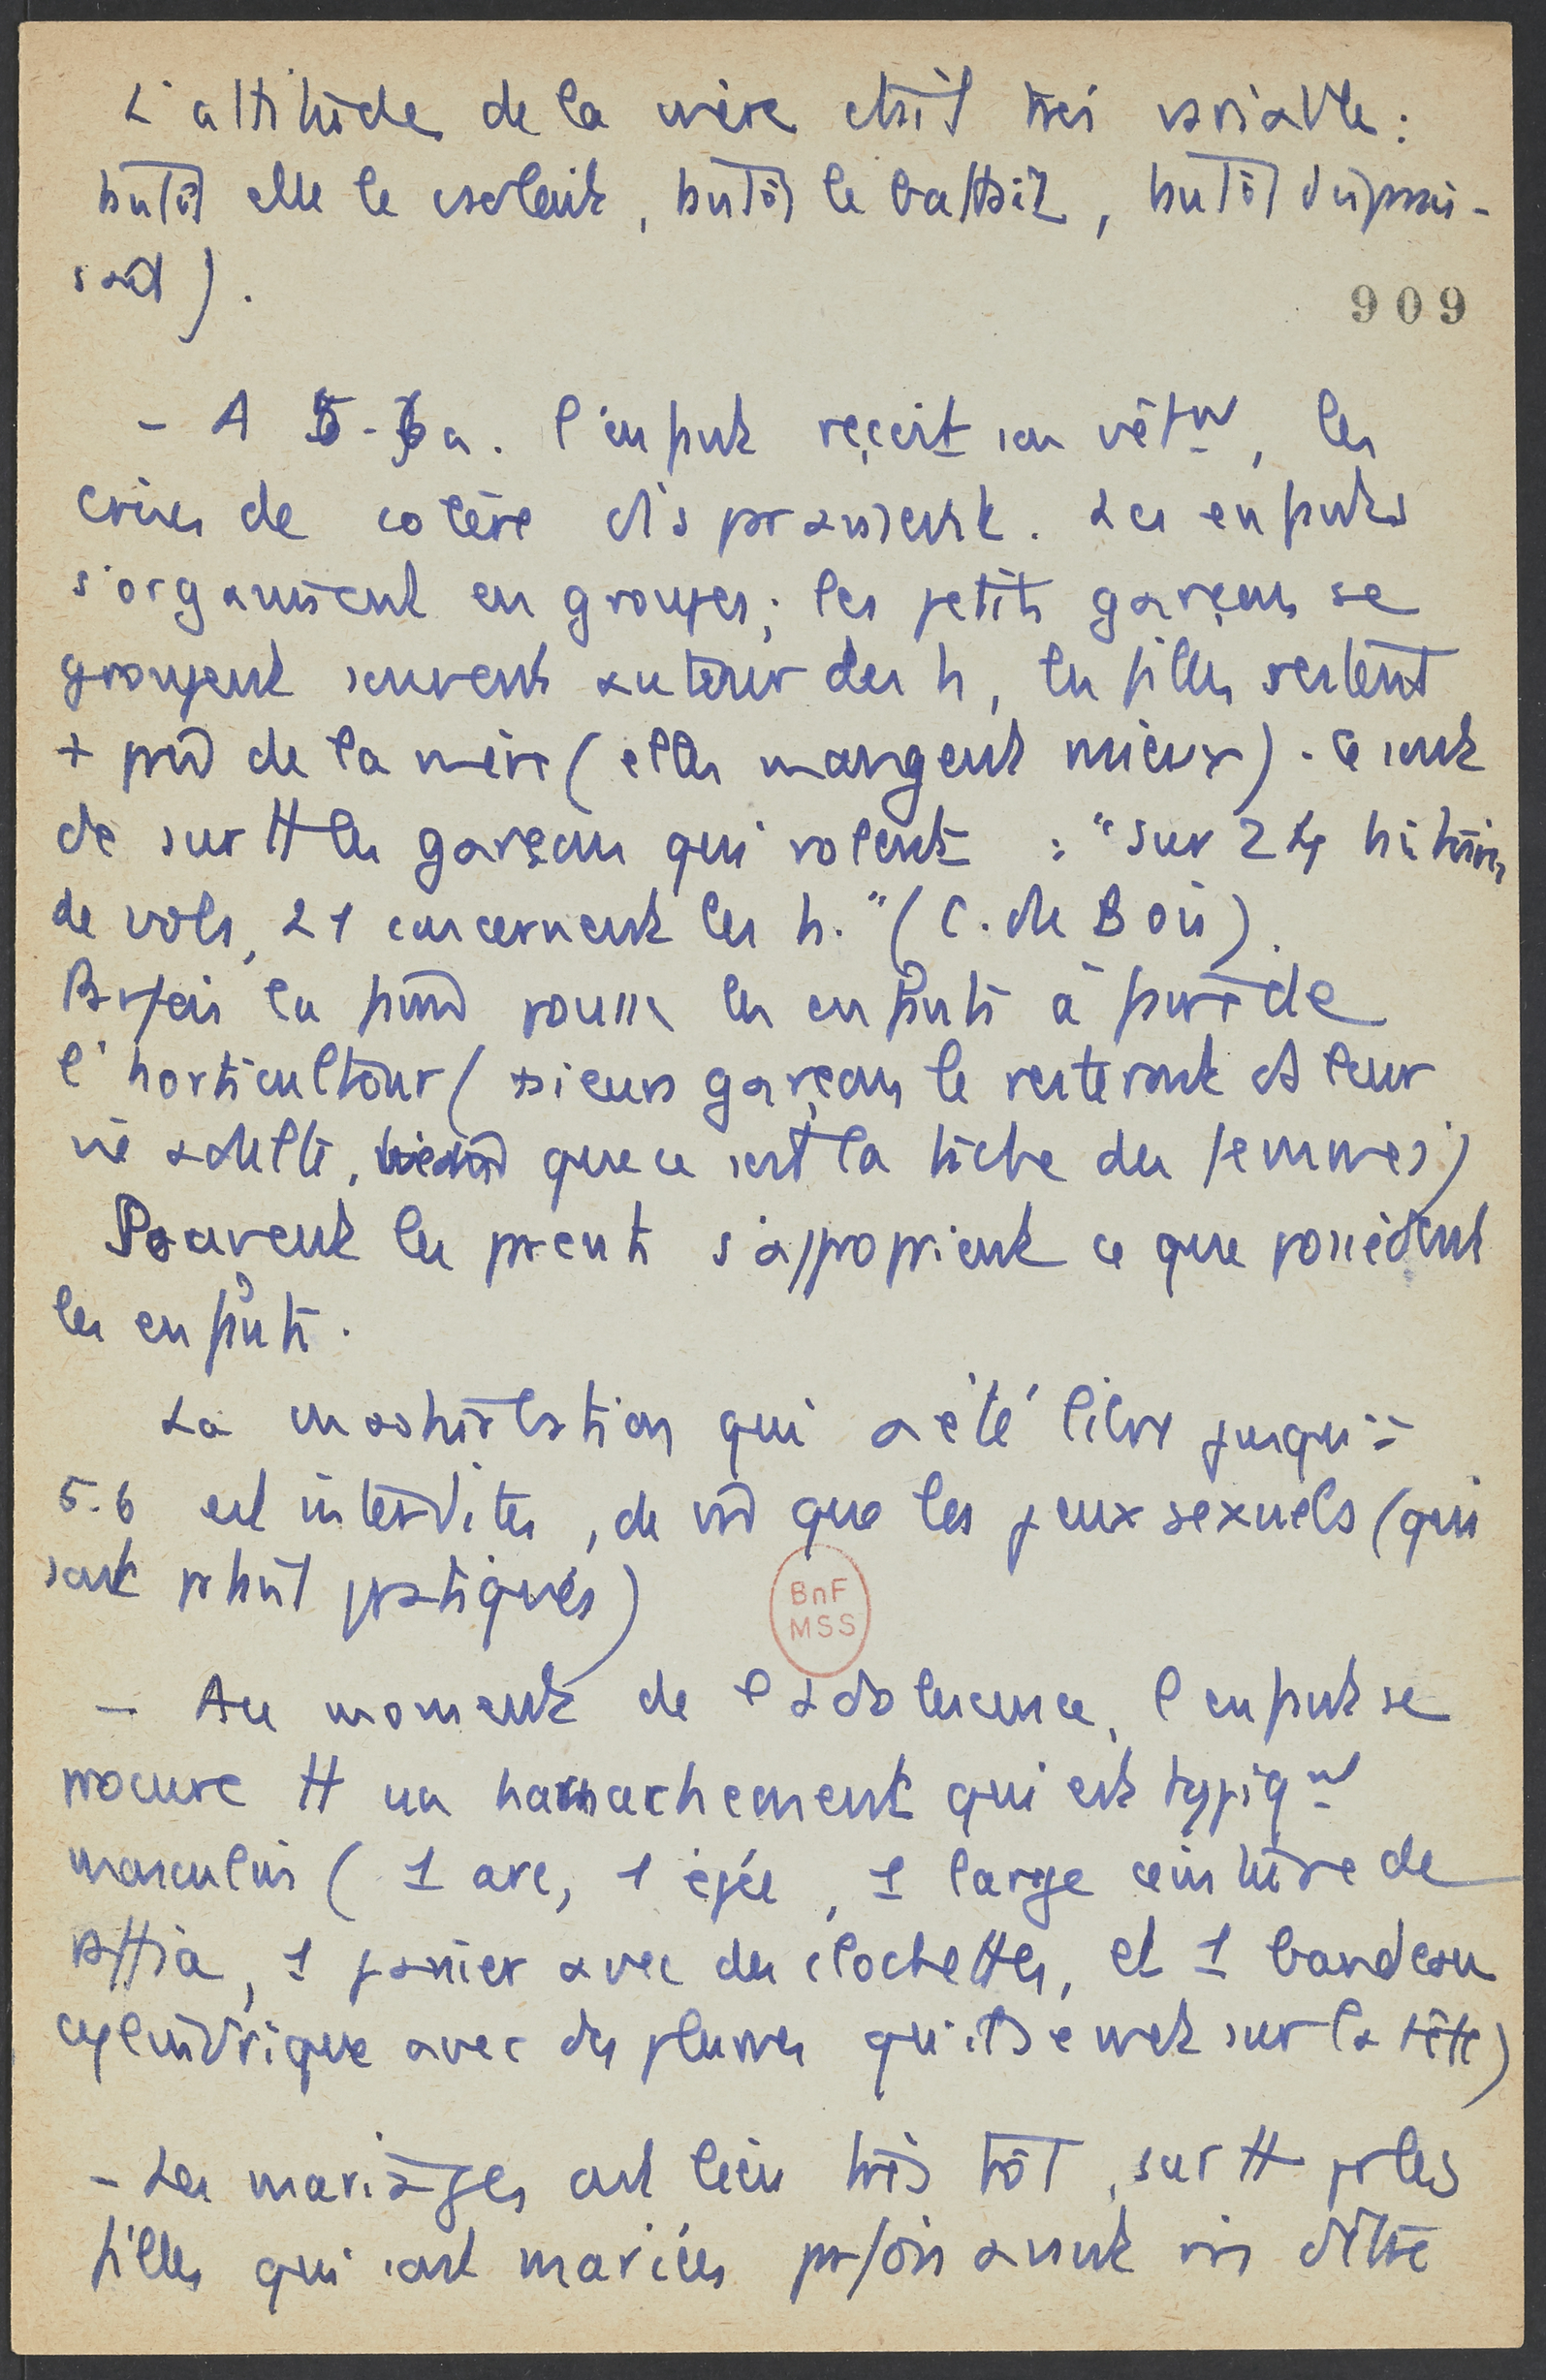 L'attitude de la mère était très variable :
tutôt elle le                , tutôt le battait, tutôt s'apaisait
sait).
909
- A 5-6 a. l'enfant reçoit son vêtmt, les
crises de colère disparaissent. Les enfants
s'organisent en groupes ; les petits garçons se
groupent souvent autour des h, les filles restent
+ près de la mère (elles mangent mieux). Ce sont
de surtt les garçons qui volent : "sur 24 histoires
de vols, 21 concernent les h." (C. du Bois).
Parfois les parents pousse les enfants à faire de
l'horticulture (plusieurs garçons le resteront ds leur
vie adulte, bien que ce soit la tâche des femmes)
Souvent les parents s'approprient ce que possèdent
les enfants.
La masturbation qui a été libre jusqu'à
5-6 est interdite, de même que les jeux sexuels (qui
sont pourtant pratiqués)
BnF
MSS
- Au moment de l'adolescence, l'enfant se
procure tt un harnachement qui est typiqmt
masculin (1 arc, 1 épée, 1 large ceinture de
raffia, 1 panier avec des clochettes, et 1 bandeau
cylindrique avec des plumes qu'ils se met sur la tête)
- Les mariages ont lieu très tôt, surtt pr les
filles qui sont mariées parfois avant